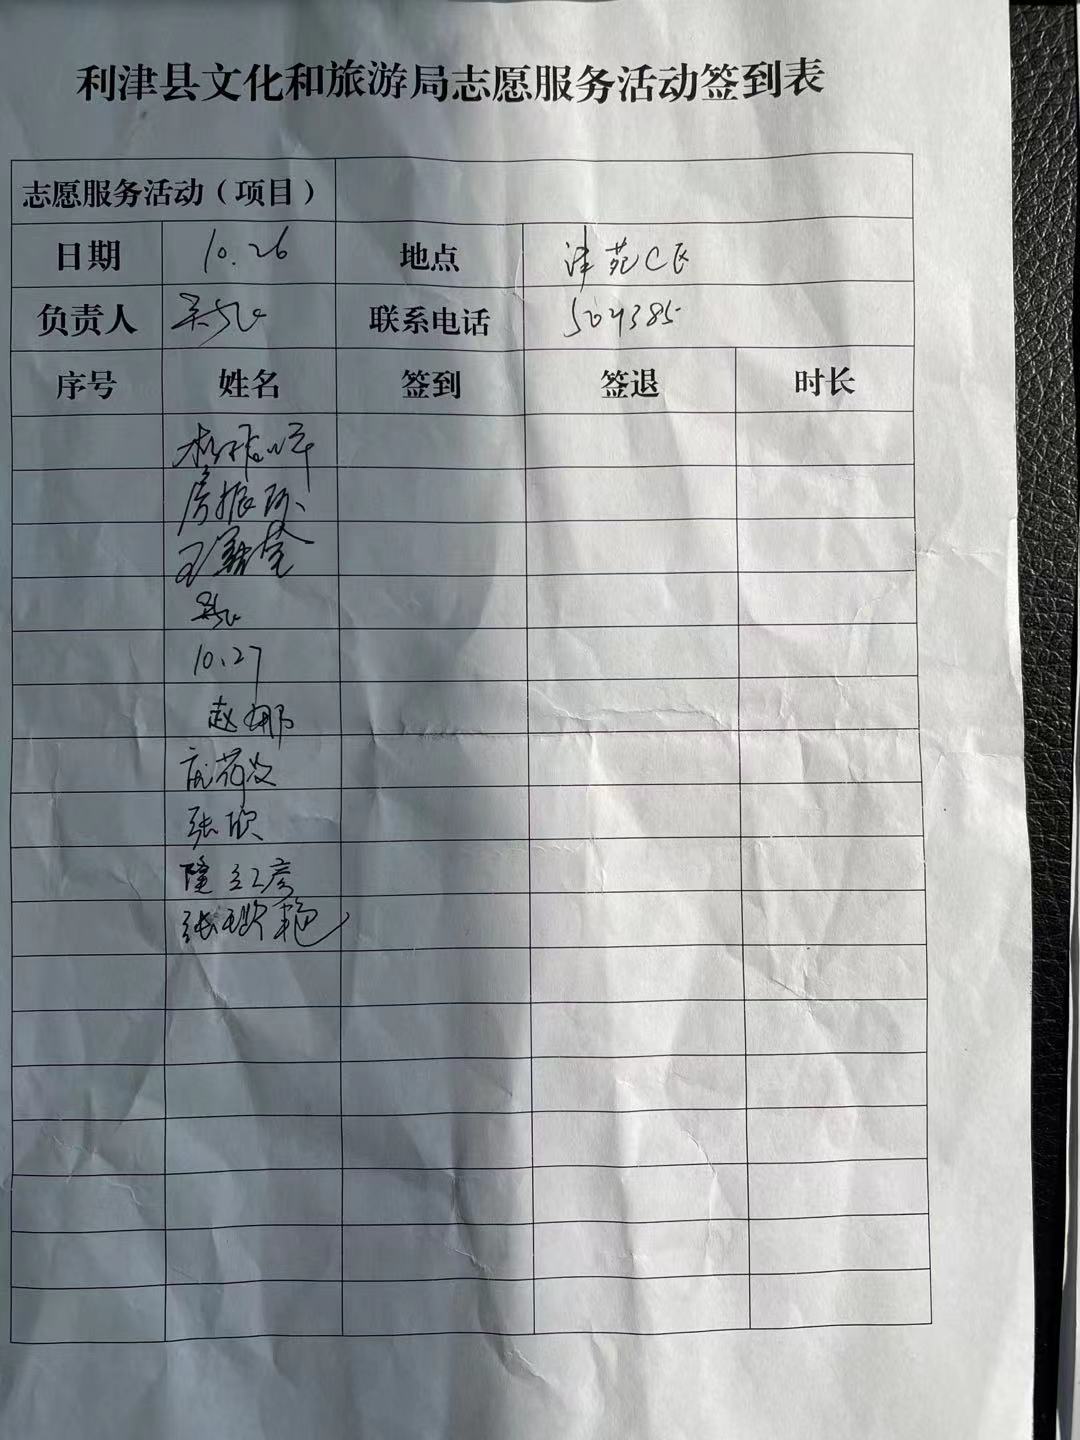 利津县文化和旅游局志愿服务活动签到表
志愿服务活动（项目）
日期 10.26 地点 津苑C区
负责人 联系电话 504385
序号 姓名 签到 签退 时长
房振
王
10.27
赵娜
张欣
隆红彦
张